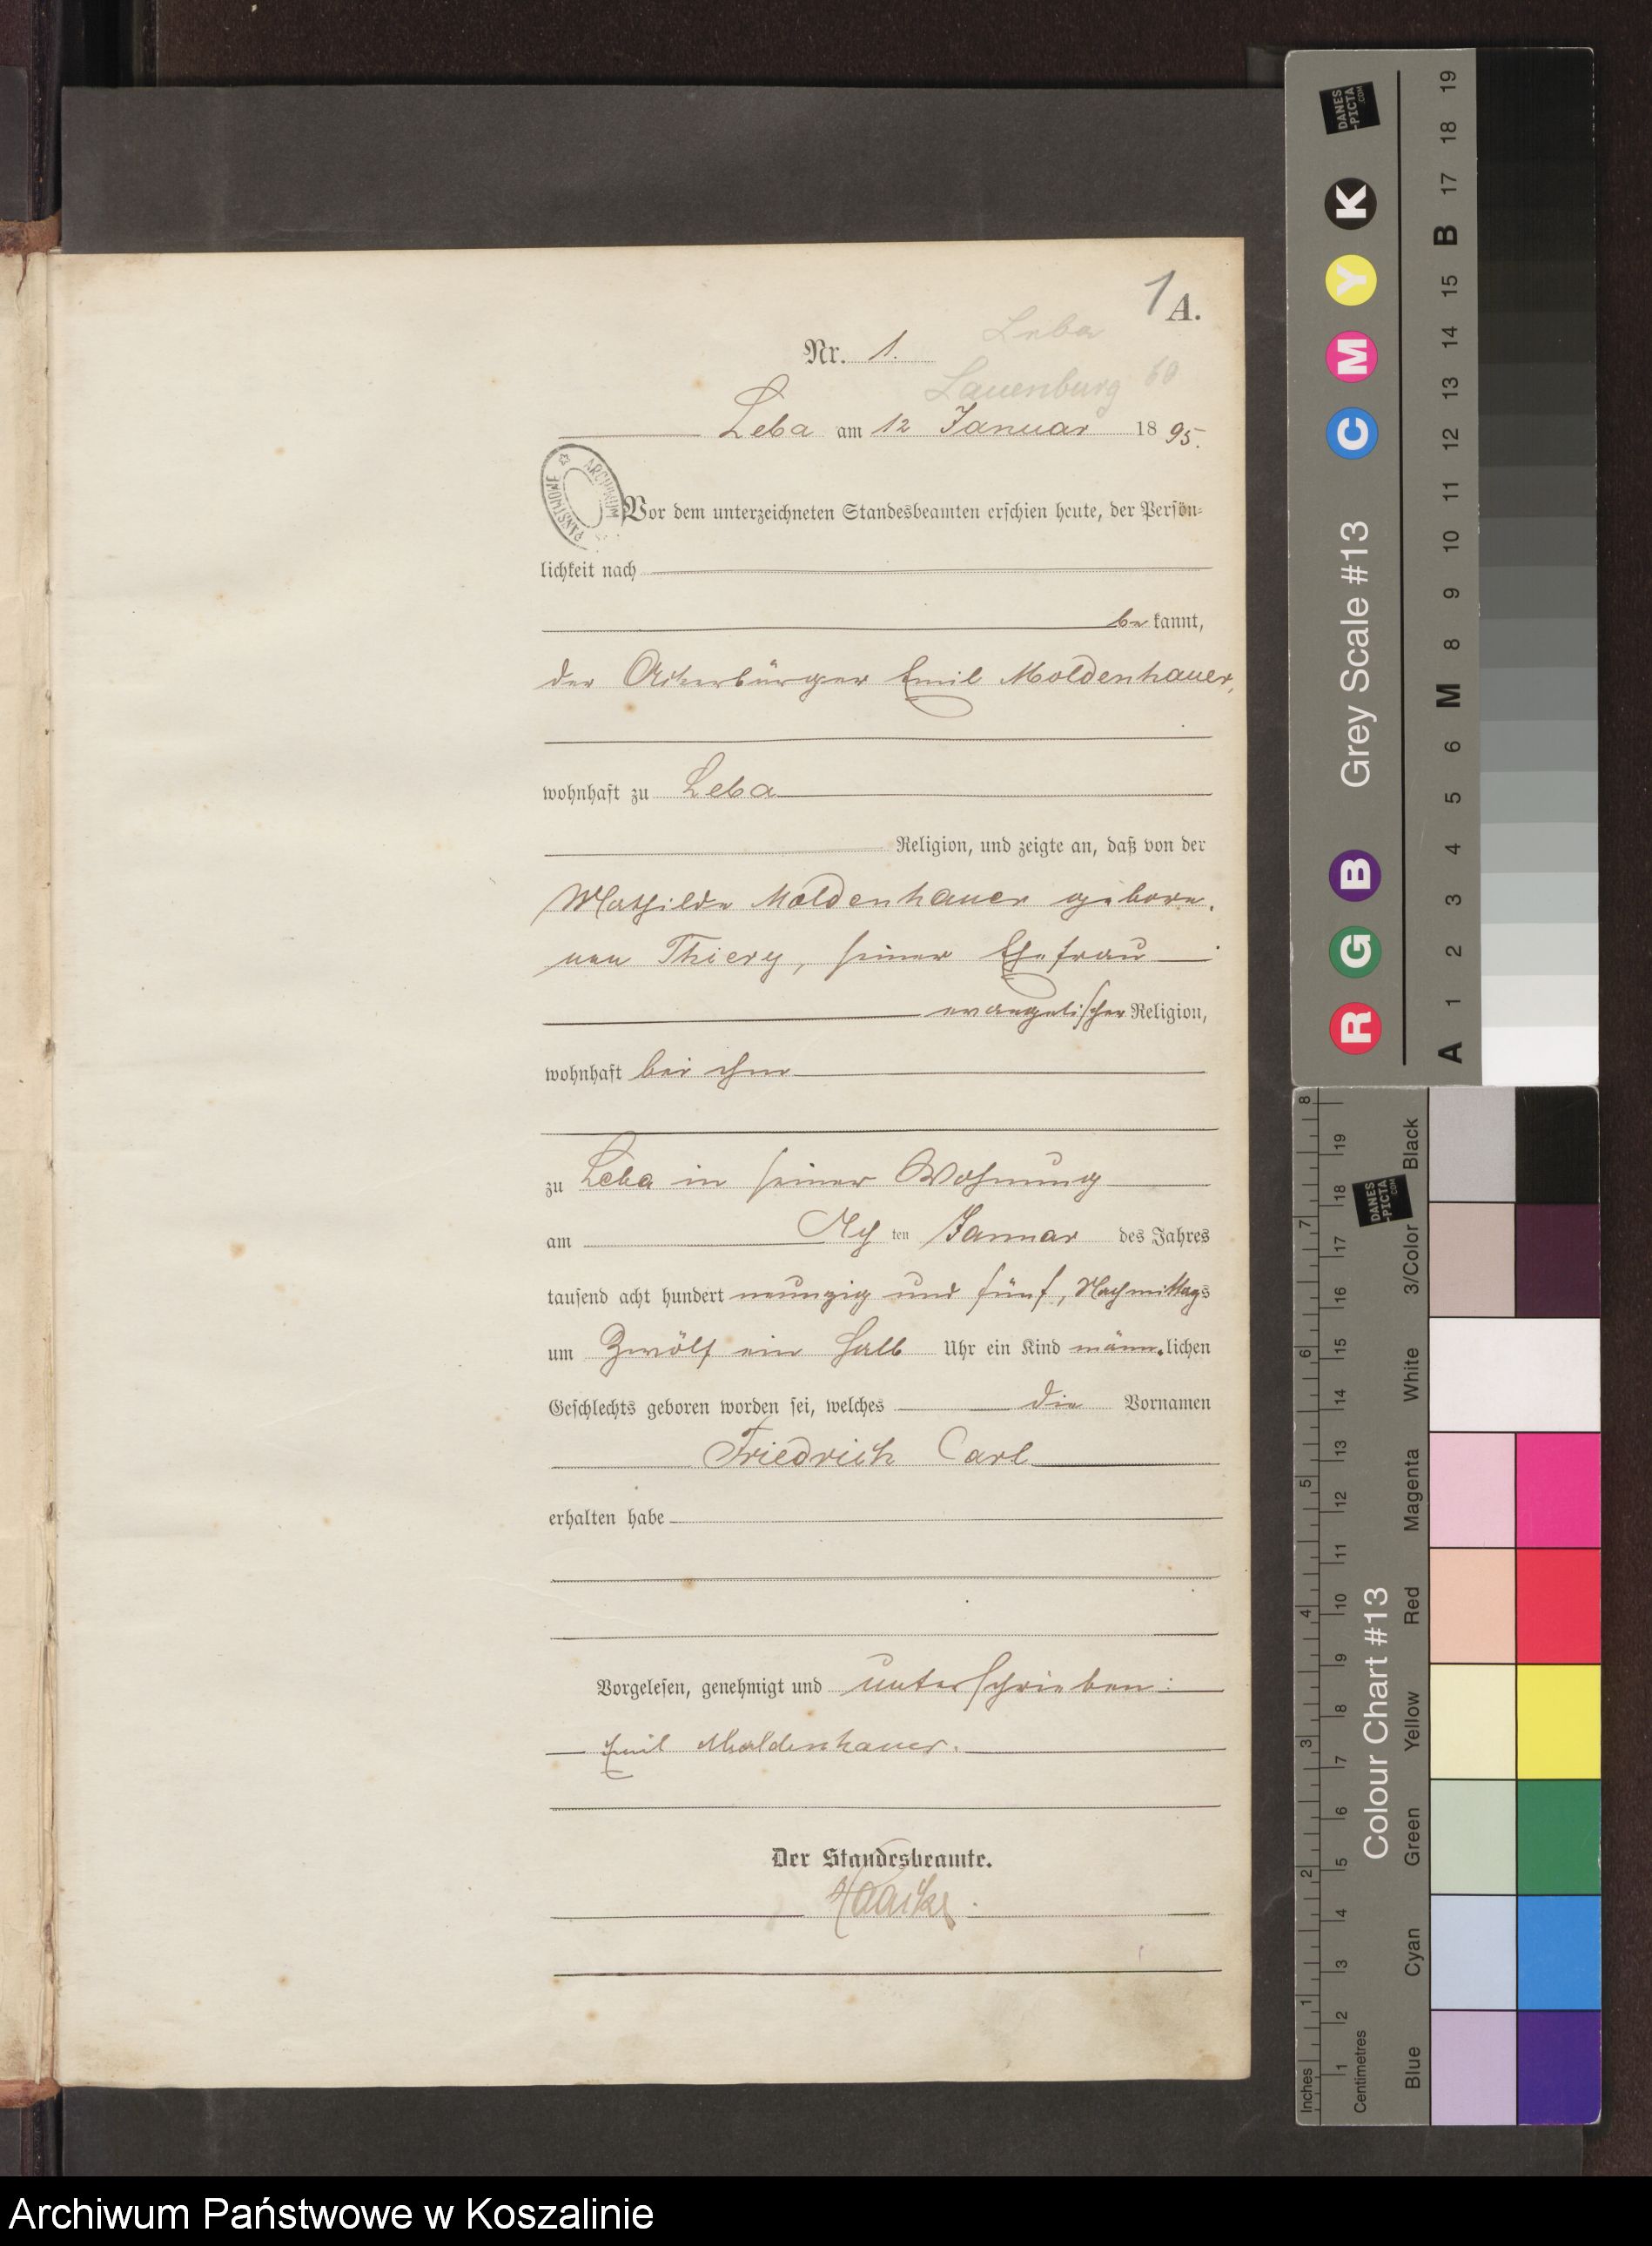 1
A.
Leba
Nr. 1.
Lauenburg 60
Leba am 12 Januar 1895.
ARCHIWUM PAŃSTWOWE
Vor dem unterzeichneten Standesbeamten erschien heute, der Persön-
lichkeit nach
bekannt,
der Ackerbürger Emil Moldenhauer,
wohnhaft zu Leba
Religion, und zeigte an, daß von der
Mathilde Moldenhauer gebore-
nen Thiery, seiner Ehefrau
evangelischer Religion,
wohnhaft bei ihm
zu Leba in seiner Wohnung
am ten Januar des Jahres
tausend acht hundert neunzig und fünf, Nachmittags
um Zwölf ein halb Uhr ein Kind männlichen
Geschlechts geboren worden sei, welches die Vornamen
Friedrich Carl
erhalten habe
Vorgelesen, genehmigt und unterschrieben:
Emil Moldenhauer.
Der Standesbeamte.
DANES-PICTA.COM
Grey Scale #13
R G B C M Y K
A 1 2 3 4 5 6 M 8 9 10 11 12 13 14 15 B 17 18 19
DANES-PICTA.COM
Colour Chart #13
Blue Cyan Green Yellow Red Magenta White 3/Color Black
Inches 1 2 3 4 5 6 7 8
Centimetres 1 2 3 4 5 6 7 8 9 10 11 12 13 14 15 16 17 18 19
Archiwum Państwowe w Koszalinie